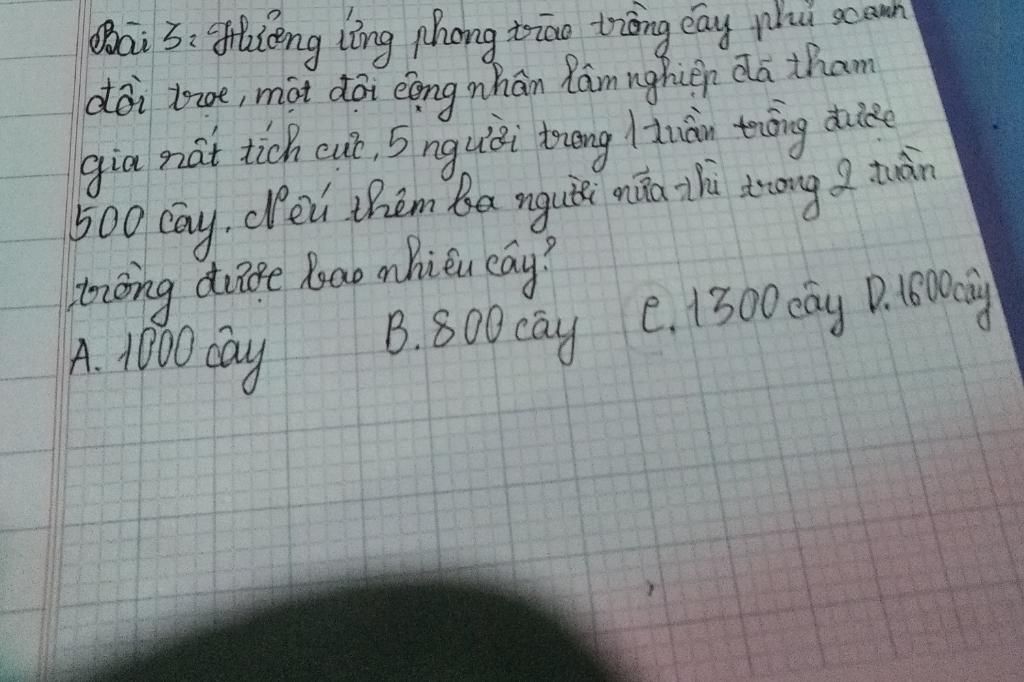 Bài 3: Hưởng ứng phong trào trồng cây phủ xanh
đồi trọc, một đội công nhân lâm nghiệp đã tham
gia rất tích cực, 5 người trong 1 tuần trồng được
500 cây. Nếu thêm ba người nữa thì trong 2 tuần
trồng được bao nhiêu cây?
A. 1000 cây B. 800 cây C. 1300 cây D. 1600 cây